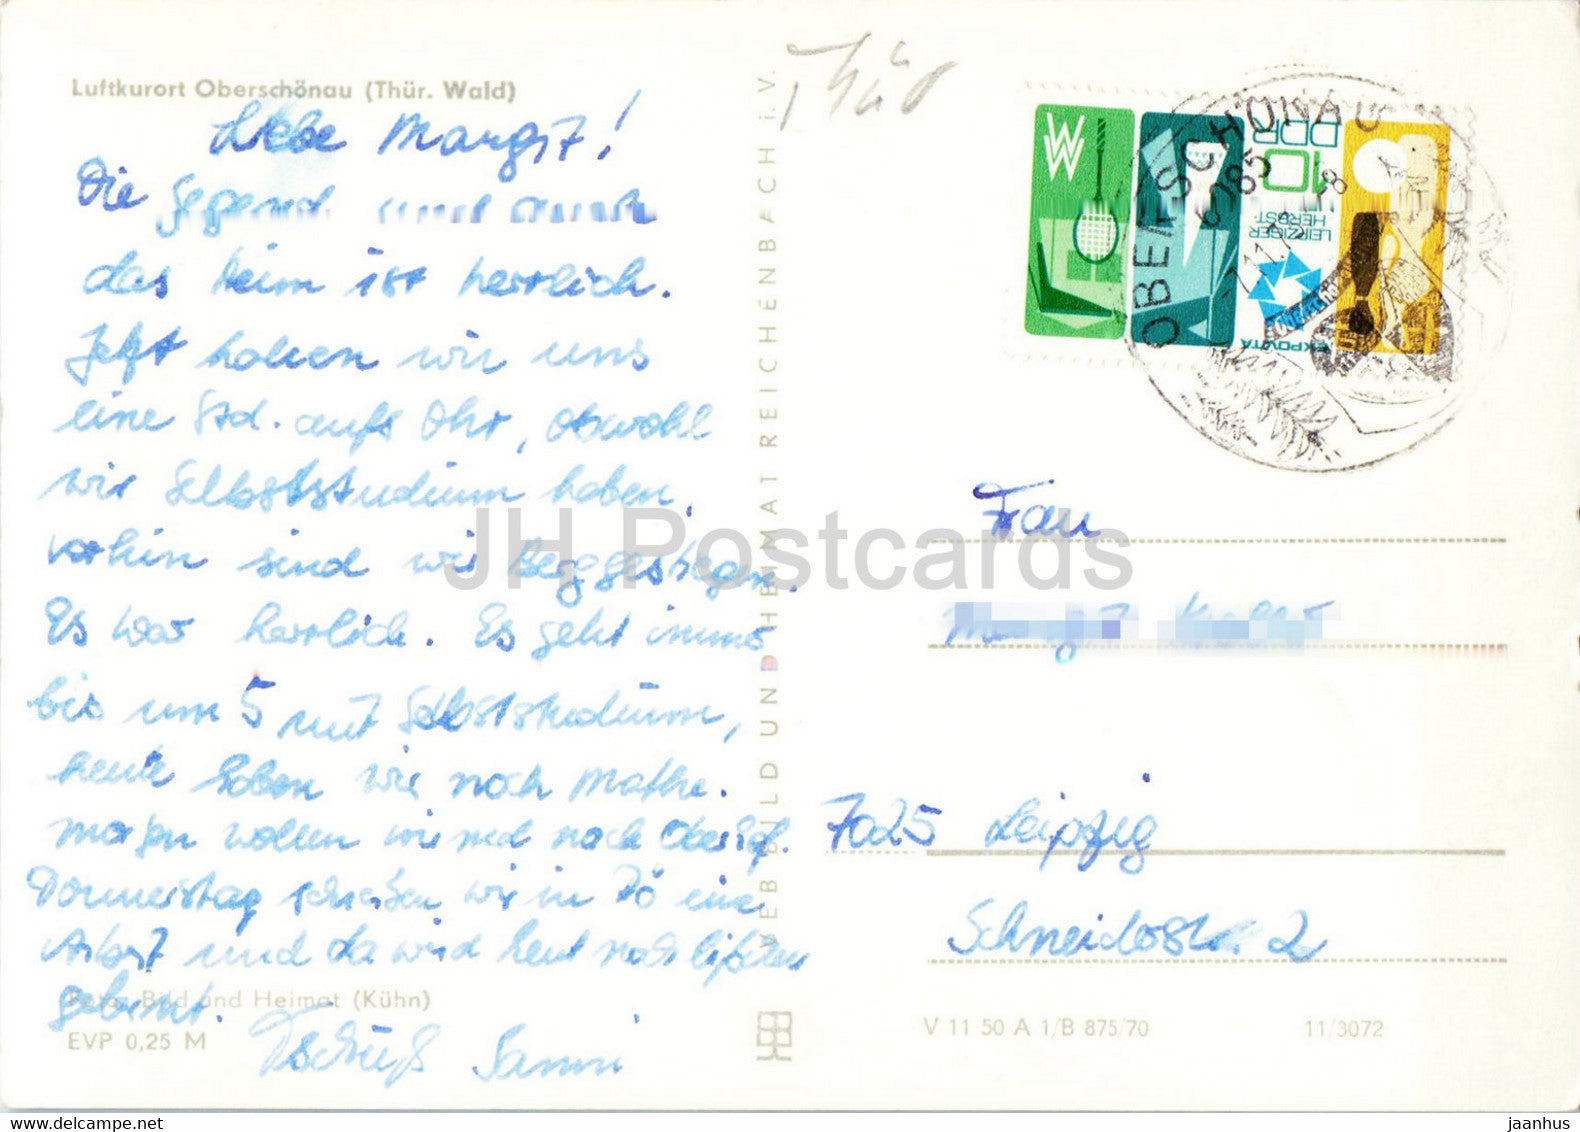 Luftkurort Oberschönau (Thür. Wald)
Thür
Liebe Margit!
Die Gegend und auch
das Heim ist herrlich.
Jetzt hauen wir uns
eine Std. aufs Ohr, obwohl
wir Selbststudium haben,
vorhin sind wir Berggestiegen.
Es war herrlich. Es geht immer
bis um 5 mit Selbststudium,
heute haben wir noch Mathe.
Morgen wollen wir mal nach Oberhof.
Donnerstag schreiben wir in PÖ eine
Arbeit und da wird heut noch
gelernt.
Tschüß Sanni
Foto: Bild und Heimat (Kühn)
EVP 0,25 M
VEB BILD UND HEIMAT REICHENBACH i. V.
OBERSCHÖNAU
6085
WW
DDR
10
LEIPZIGER
HERBST
EXPOVITA
Frau
7025 Leipzig
2
V 11 50 A 1/B 875/70
11/3072
JH Postcards
www.delcampe.net
jaanhus